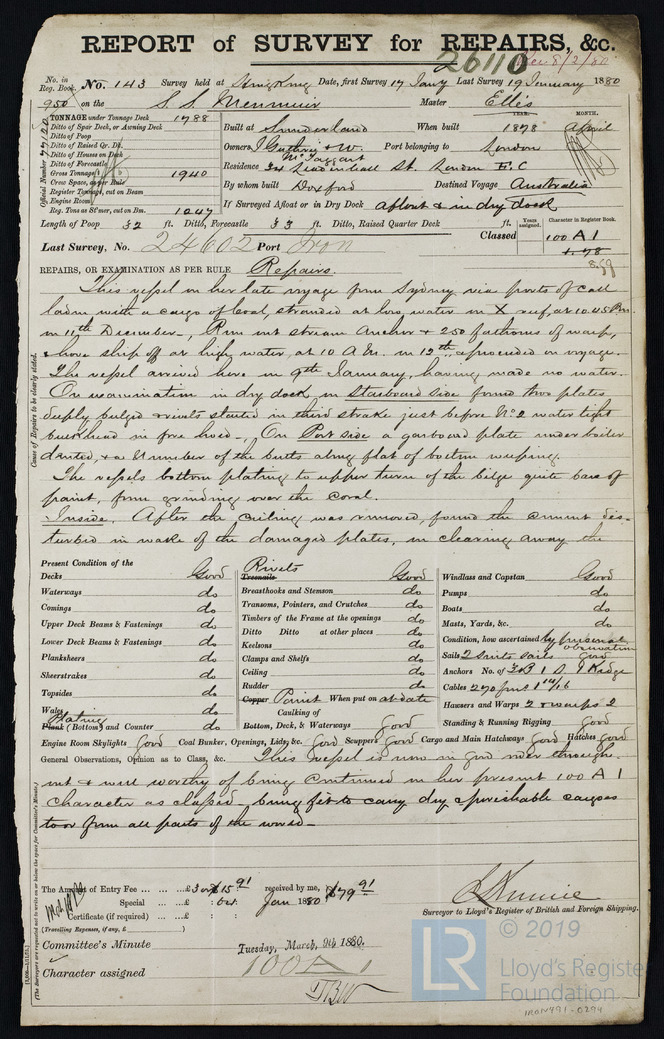 REPORT of SURVEY for REPAIRS, &c.
26110 Rec 8/3/80
No. in Reg. Book. No. 143 Survey held at Hong Kong Date, first Survey 17 Jany Last Survey 19 January 1880
950 on the S. S. Menmuir Master Ellis
TONNAGE under Tonnage Deck 1788
Ditto of Spar Deck, or Awning Deck
Ditto of Poop
Ditto of Raised Qr. Dk.
Ditto of Houses on Deck
Ditto of Forecastle
Gross Tonnage 1940
Crew Space, as per Rule
Register Tonnage, cut on Beam
Engine Room
Reg. Tons as St'mer, cut on Bm. 1247
Official Number
Built at Sunderland When built YEAR. 1878 MONTH. April
Owners J Guthrie & W. McTaggart Port belonging to London
Residence 34 Leadenhall St. London E.C
By whom built Doxford Destined Voyage Australia
If Surveyed Afloat or in Dry Dock afloat & in dry dock
Length of Poop 32 ft. Ditto, Forecastle 33 ft. Ditto, Raised Quarter Deck ft.
Years assigned. Character in Register Book.
Classed 100 A 1
1.78
Last Survey, No. 24602 Port Iron
REPAIRS, OR EXAMINATION AS PER RULE Repairs.
Cause of Repairs to be clearly stated.
This vessel in her late voyage from Sydney via ports of call
laden with a cargo of Coal, stranded at low water on X reef, at 10.45 P.m.
on 11th December, Run out stream Anchor & 250 fathoms of warp,
& hove ship off at high water, at 10 A.m. on 12th, & proceeded on voyage.
The vessel arrived here on 9th January, having made no water.
On examination in dry dock on Starboard side found two plates
deeply bulged & rivets started in third strake just before No 2 water tight
bulkhead in fore hold. On Port side a garboard plate under boiler
dented, & a number of the butts along flat of bottom weeping.
The vessels bottom plating to upper turn of the bilge quite bare of
paint, from grinding over the coral.
Inside. After the ceiling was removed, found the cement dis-
turbed in wake of the damaged plates, on clearing away the
Present Condition of the
Decks Good
Waterways do
Comings do
Upper Deck Beams & Fastenings do
Lower Deck Beams & Fastenings do
Planksheers do
Sheerstrakes do
Topsides do
Wales do
Plating
Plank (Bottom) and Counter do
Rivets
Treenails Good
Breasthooks and Stemson do
Transoms, Pointers, and Crutches do
Timbers of the Frame at the openings do
Ditto Ditto at other places do
Keelsons do
Clamps and Shelfs do
Ceiling do
Rudder do
Copper Paint When put on at date
Caulking of
Bottom, Deck, & Waterways Good
Windlass and Capstan Good
Pumps do
Boats do
Masts, Yards, &c. do
Condition, how ascertained by personal observation
Sails 2 suits sails good
Anchors No. of 3 B 1 S 1 Kedge
Cables 270 fms 1 10/16
Hawsers and Warps 2 & warps 2
Standing & Running Rigging Good
Engine Room Skylights Good Coal Bunker, Openings, Lids, &c. Good Scuppers Good Cargo and Main Hatchways Good Hatches Good
General Observations, Opinion as to Class, &c. This vessel is now in good order through-
out & well worthy of being continued in her present 100 A 1
character as classed, being fit to carry dry & perishable cargoes
to or from all parts of the world
(The Surveyors are requested not to write on or below the space for Committee's Minute.)
The Amount of Entry Fee
received by me,
Special
Jan 1880
Certificate (if required)
(Travelling Expenses, if any, £ )
Surveyor to Lloyd's Register of British and Foreign Shipping.
Committee's Minute Tuesday, March, 9th 1880.
Character assigned 100 A 1
© 2019
LR
Lloyd's Registe
Foundation
IRON491-0294